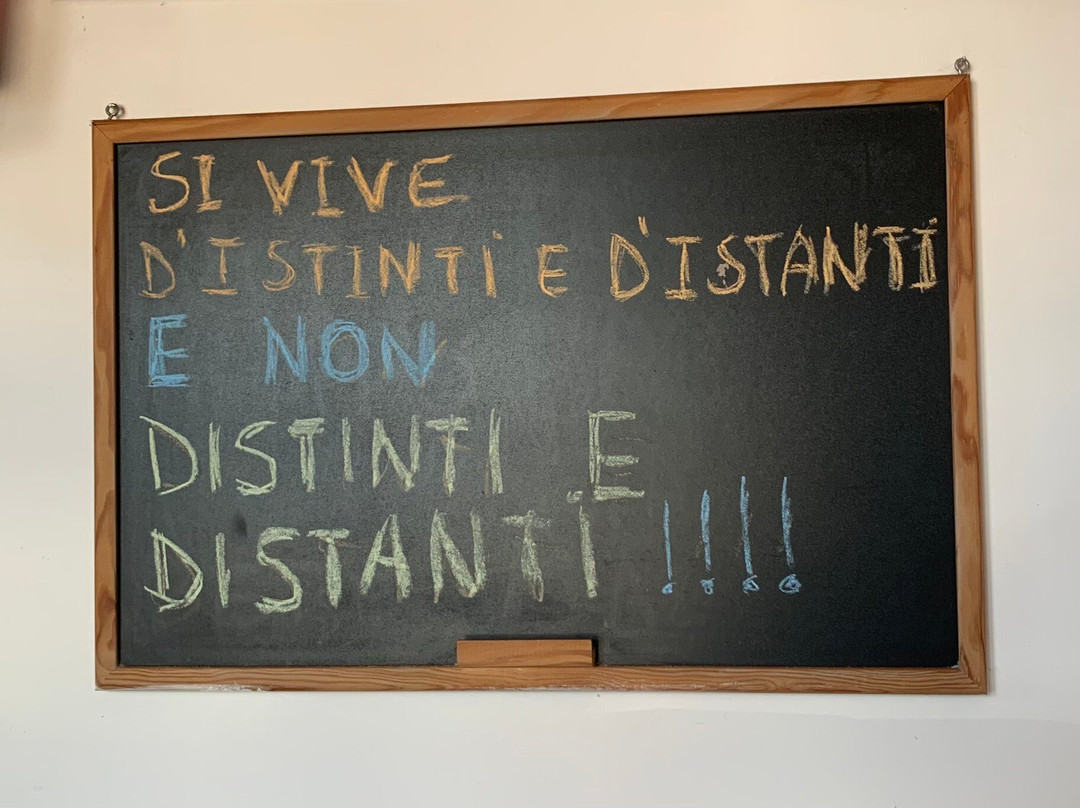 SI VIVE
D'ISTINTI E D'ISTANTI
E NON
DISTINTI E
DISTANTI !!!!